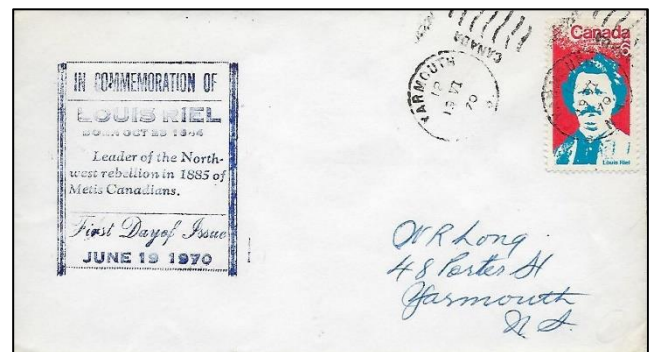 IN COMMEMORATION OF
LOUIS RIEL
BORN OCT 23 1844
Leader of the North-
west rebellion in 1885 of
Metis Canadians.
First Day of Issue
JUNE 19 1970
CANADA
YARMOUTH
19 VI
70
Canada
6
Louis Riel
W R Long
48 Porter St
Yarmouth
N. S.